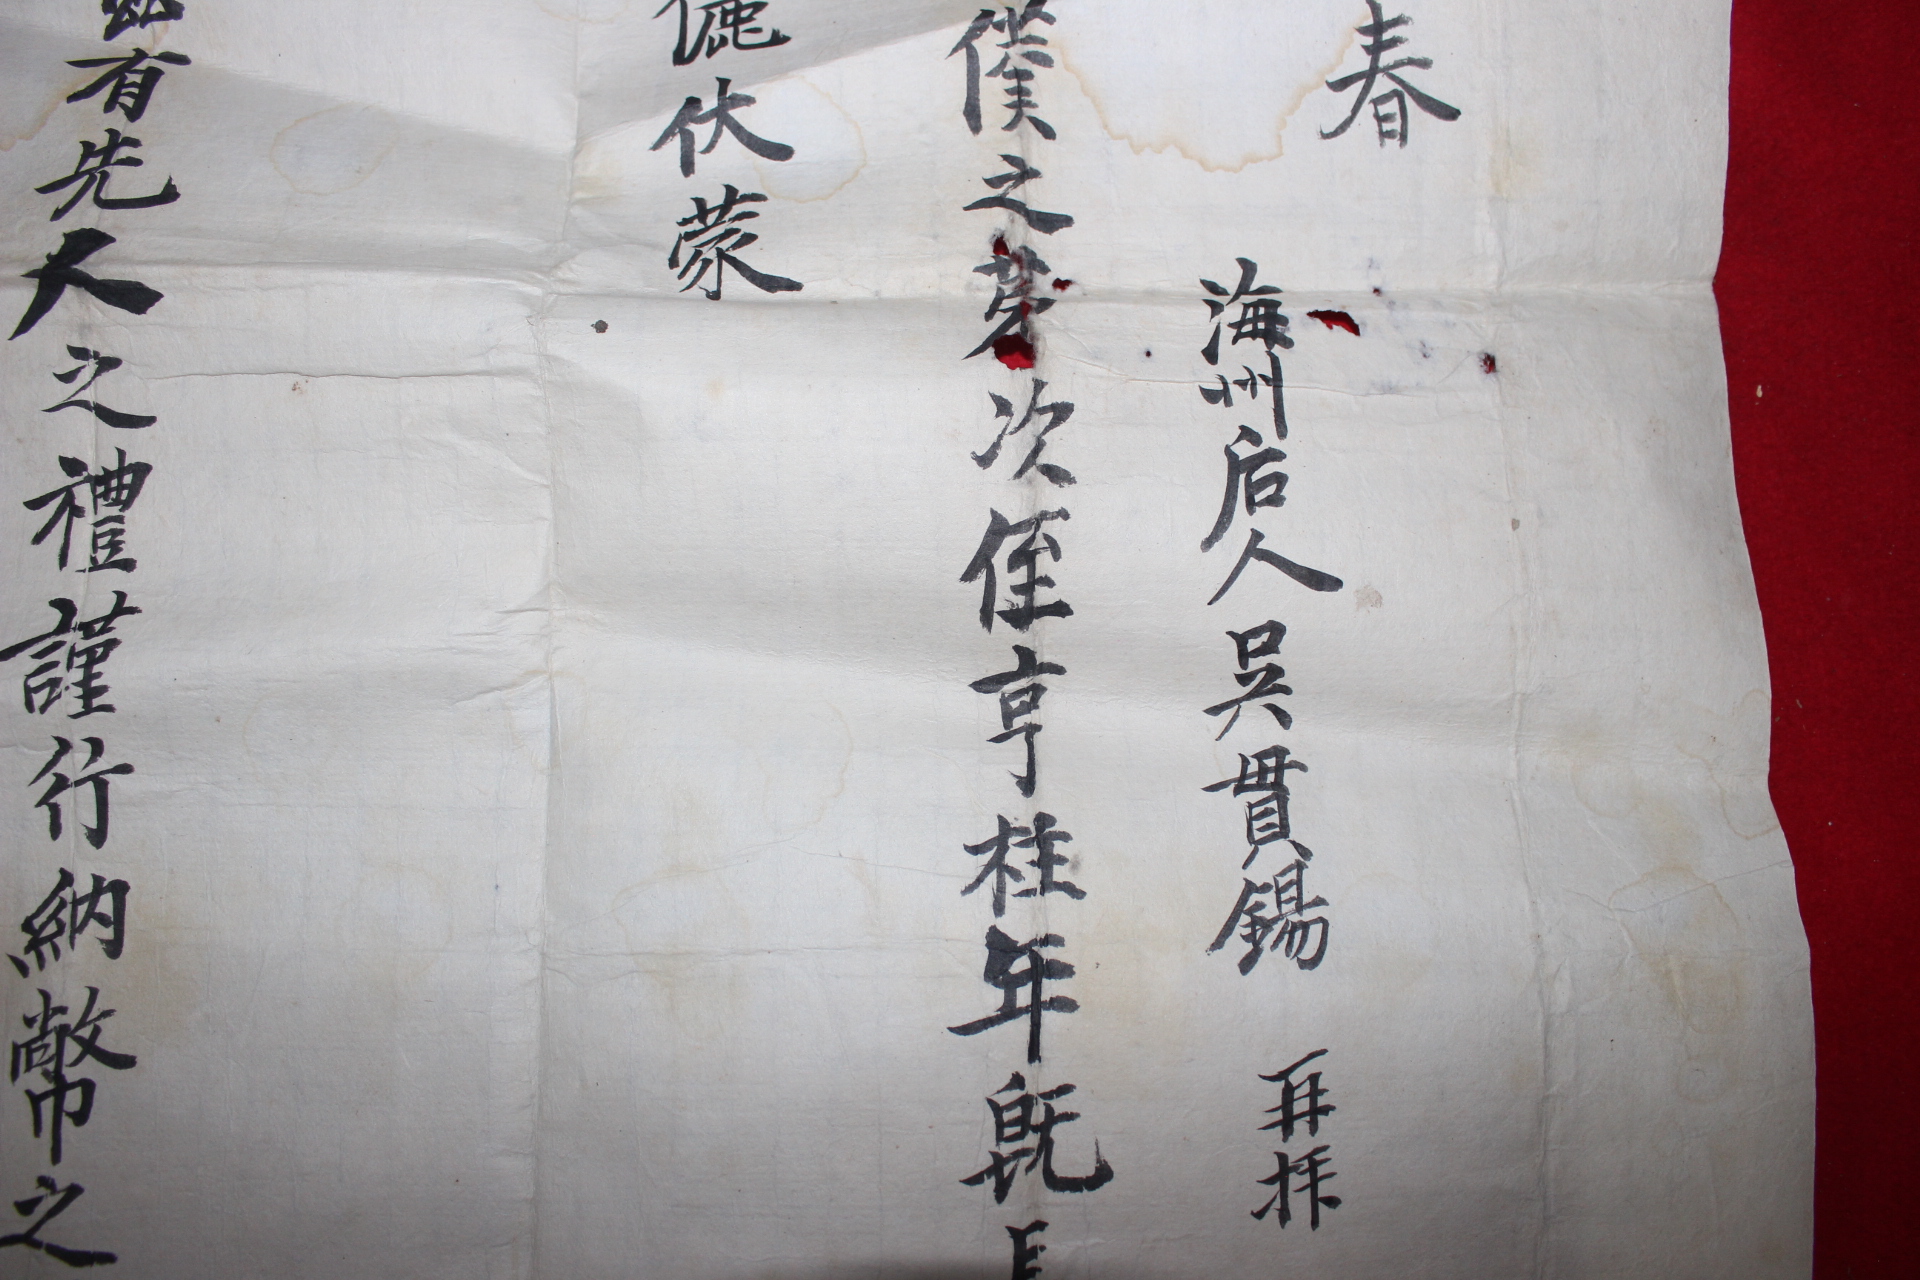 春
海州后人吳貫錫 再拜
僕之第次侄亨柱年旣長
儷伏蒙
玆有先人之禮謹行納幣之